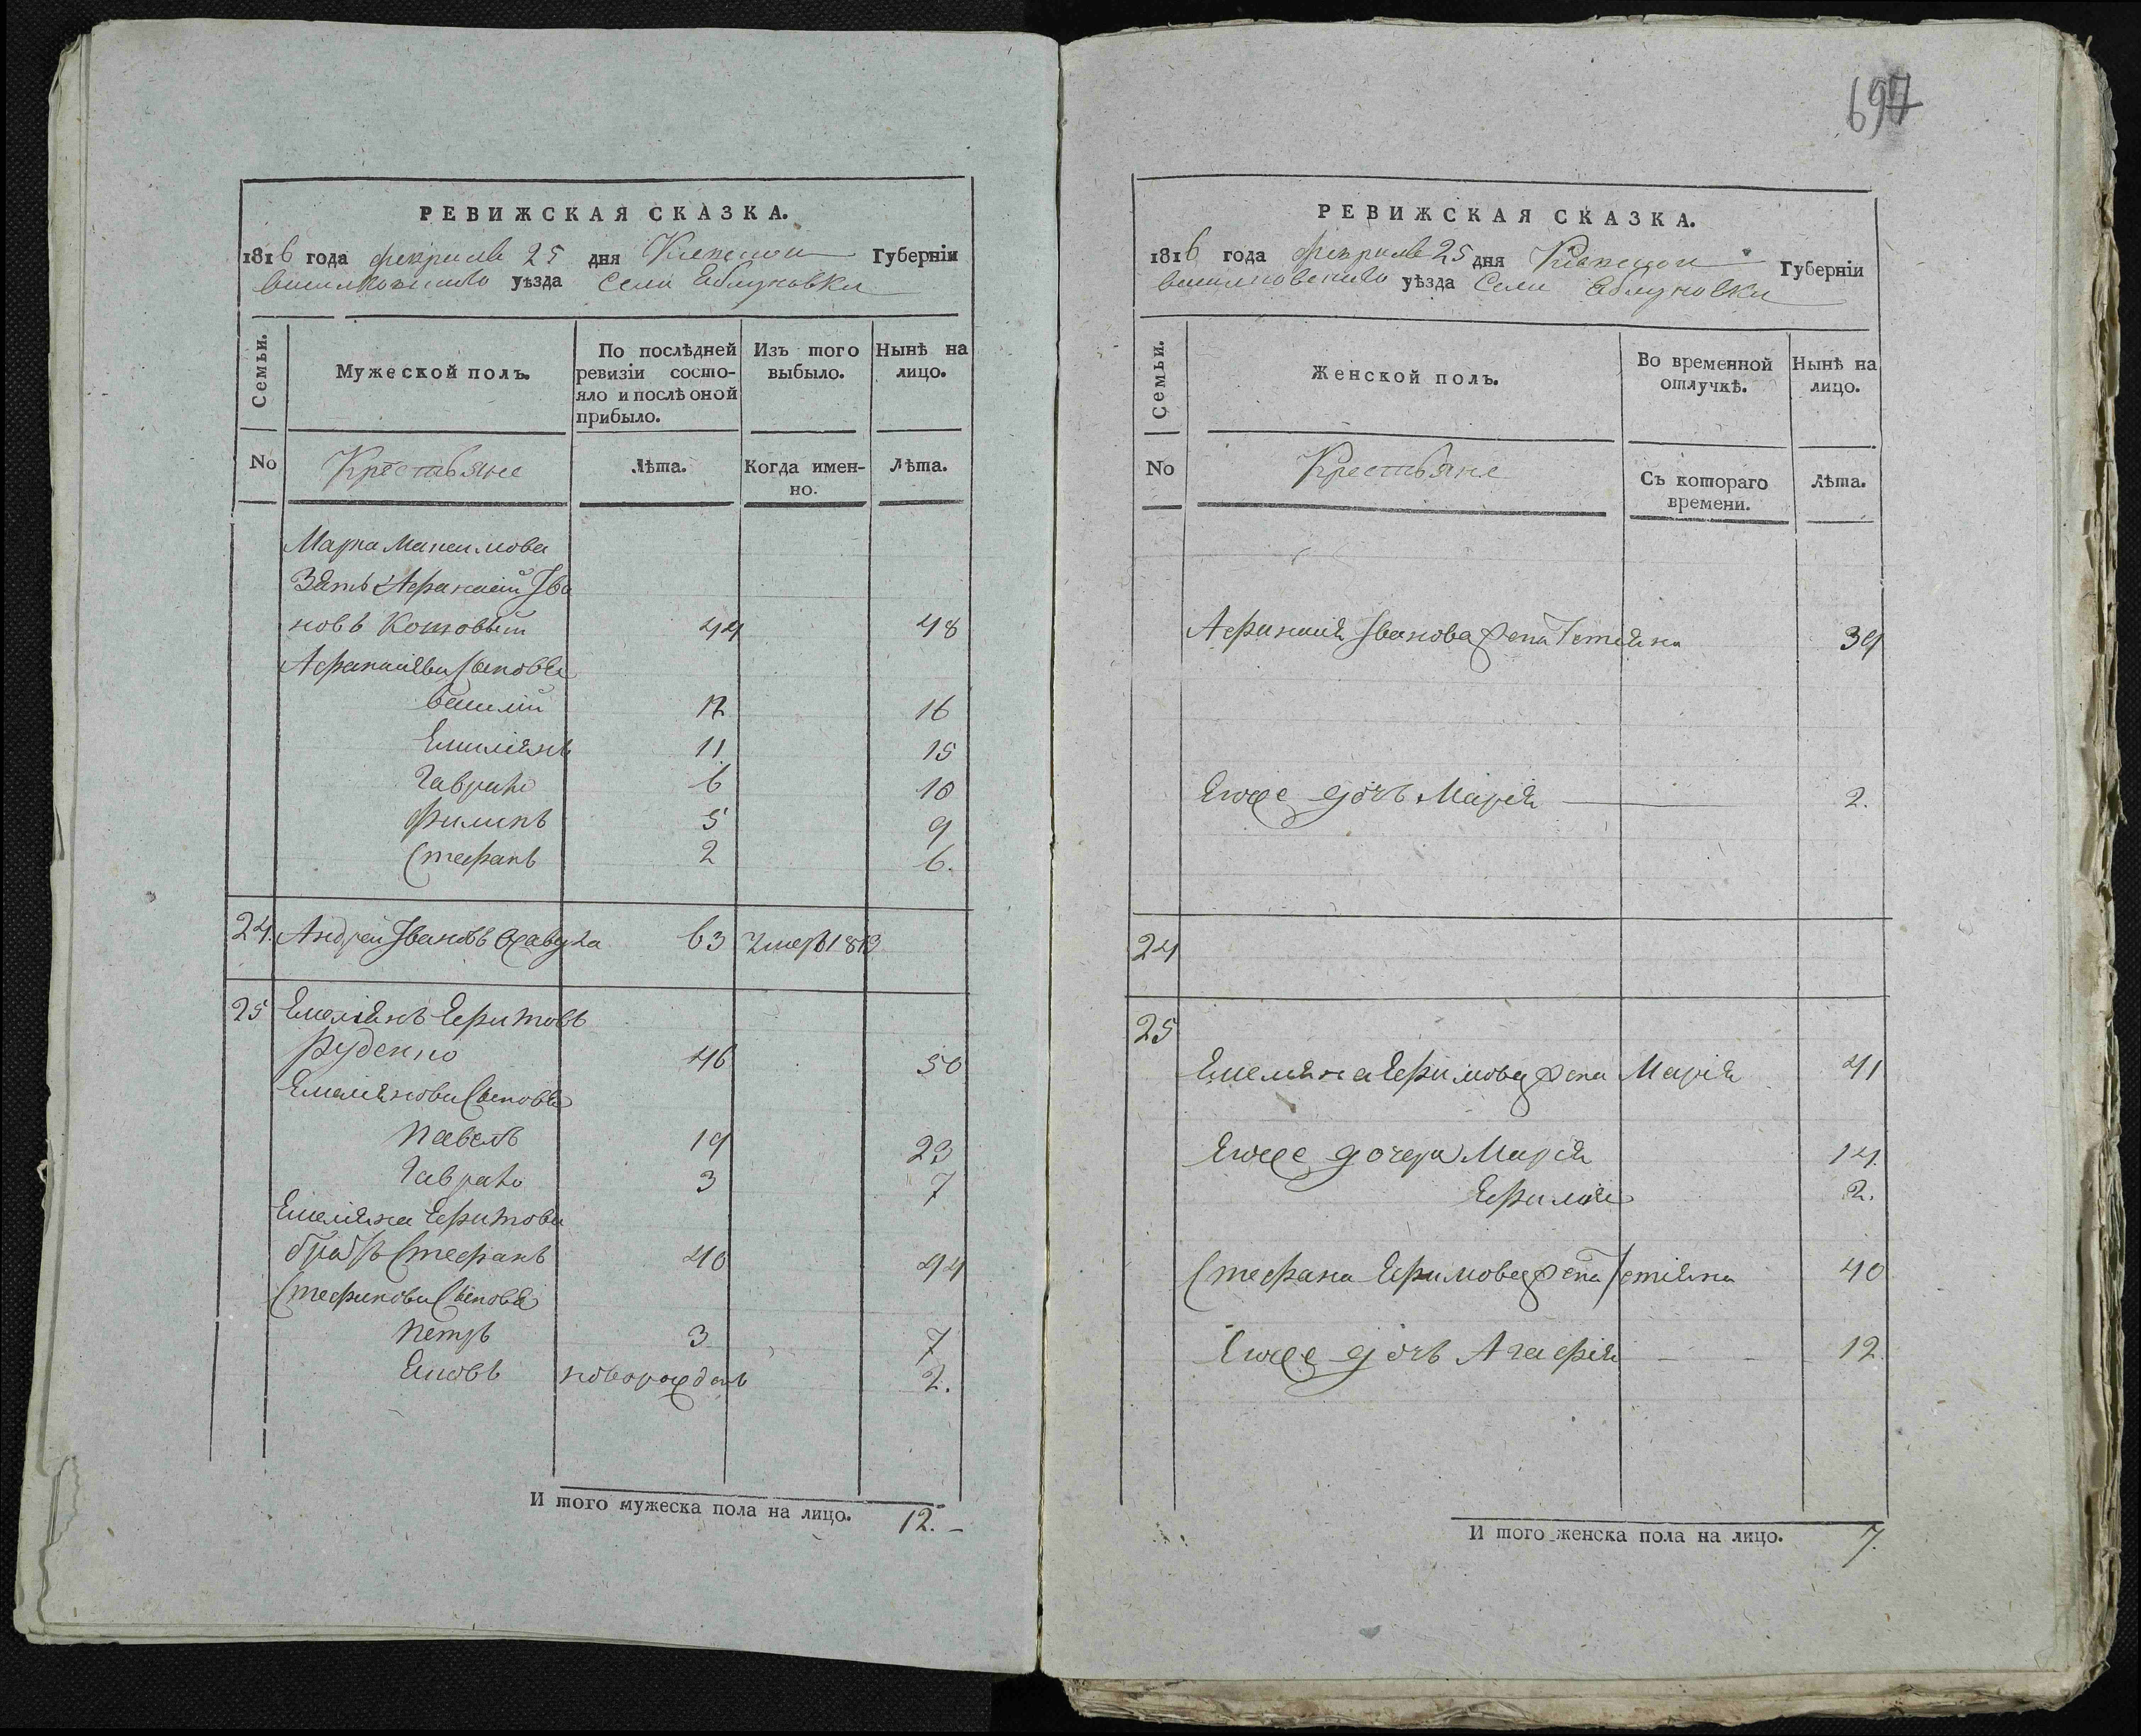 РЕВИЖСКАЯ СКАЗКА.
1816 года февраля 25 дня Киевской Губерніи
васильковского уѣзда Села Яблуновки
Семьи.
Мужеской полъ.
По послѣдней ревизіи состо-
яло и послѣ оной
прибыло.
Изъ того
выбыло.
Нынѣ на
лицо.
No
Крестьяне
Лѣта.
Когда имен-
но.
Лѣта.
Марка Максимова
Зять Афанасій Ива
новъ Котовый 44 48
Афанасіевы Сыновья
Василій 12 16
Емиліянъ 11 15
Гаврило 6 10
Филипъ 5 9
Стефанъ 2 6.
24. Андрей Ивановъ 63 умер 1813
25 Емеліянъ Ефимовъ
Руденко 46 50
Емеліяновы Сыновья
Павелъ 19 23
Гаврило 3 7
Емеліяна Ефимова
братъ Стефанъ 40 44
Стефановы Сыновья
Петръ 3 7
Яковъ новорожденъ 2.
И того мужеска пола на лицо. 12.
697
РЕВИЖСКАЯ СКАЗКА.
1816 года февраля 25 дня Киевской Губерніи
васильковского уѣзда Села Яблуновки
Семьи.
Женской полъ.
Во временной
отлучкѣ.
Нынѣ на
лицо.
No
Крестьяне
Съ котораго
времени.
Лѣта.
Афанасія Иванова жена Тетіяна 39
Егоже дочь Марія 2.
24
25
Емеліяна Ефимова жена Марія 41
Егоже дочери Марія 14.
Ефимія 2.
Стефана Ефимова жена Тетіяна 40
Егоже дочь Агафія 12.
И того женска пола на лицо. 7.